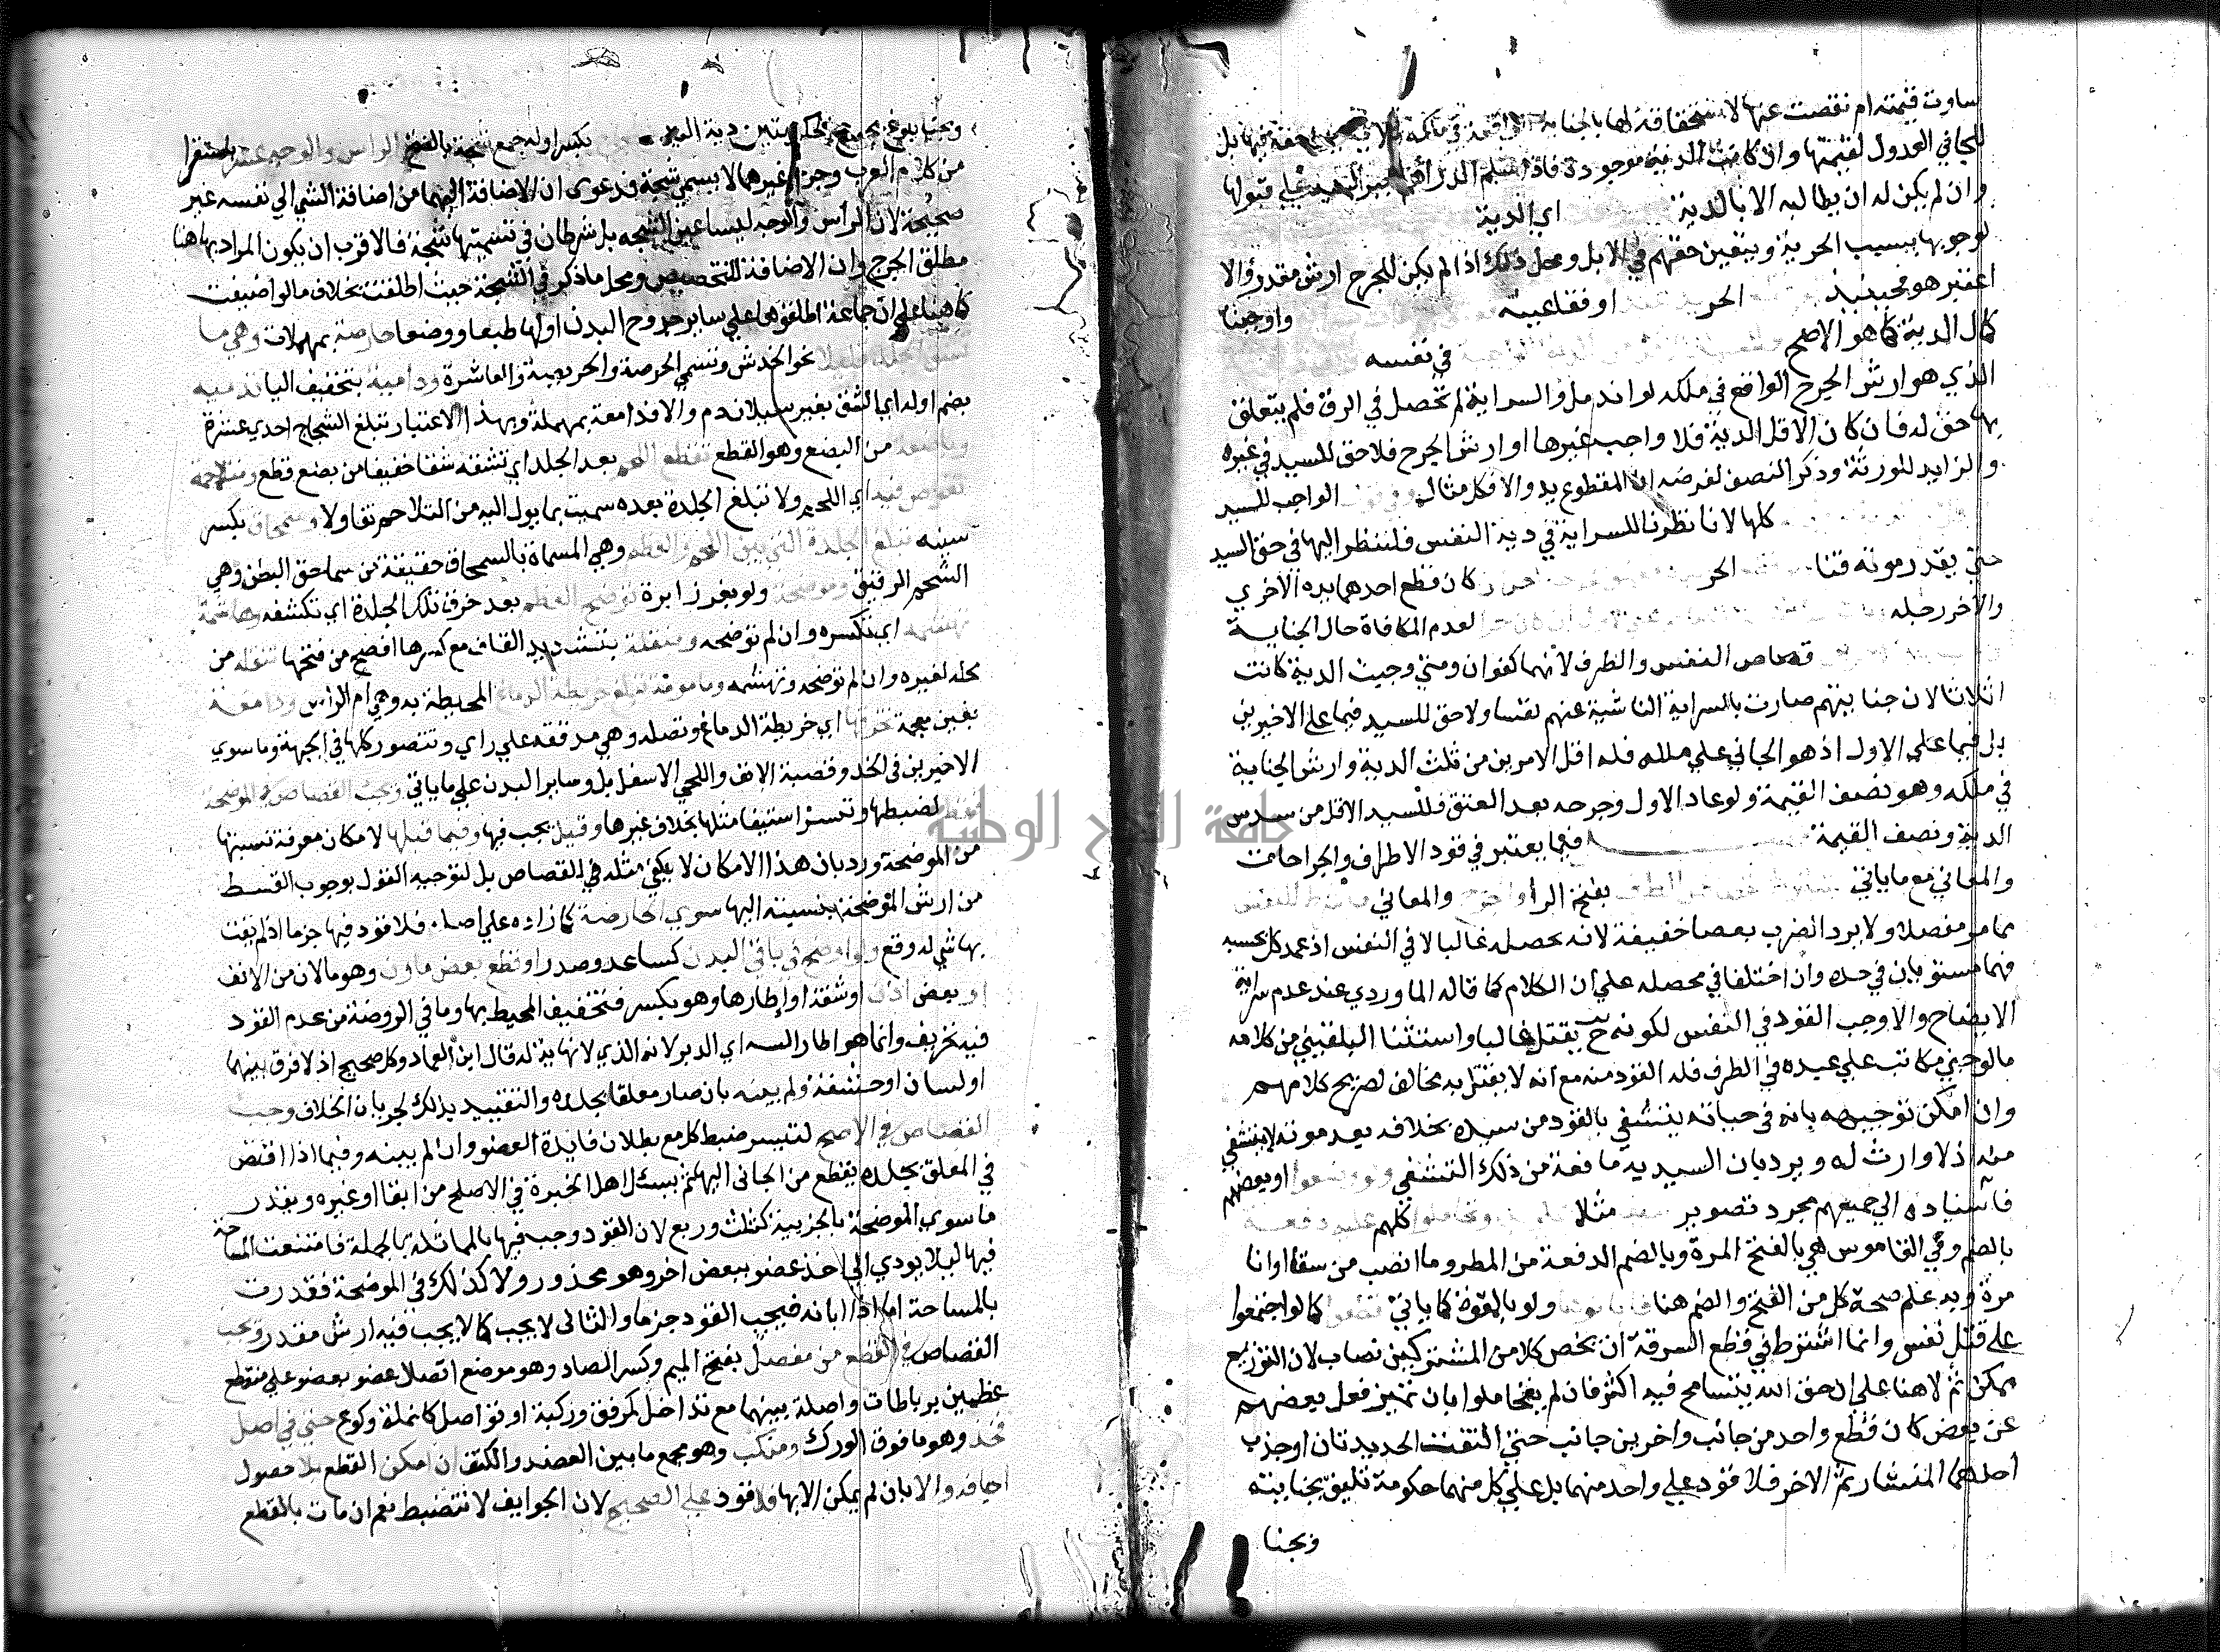 ساوت قيمته ام نقصت عنها لاستحقاقه لها بالجناية الواقعة في ملكه حقه فيها بل
للجاني العدول لقيمتها وان كانت الدية موجودة فاذا سلم الدراهم اجبر السيد علي قبولها
وان لم يكن له ان يطالبه الا بالدية اي الدية
لوجوبها بسبب الحرية ويتعين حقهم في الابل ومحل ذلك اذا لم يكن للجرح ارش مقدر والا
اعتبر هو فحينئذ الحر او فقا عينه واوجبنا
كمال الدية كما هو الاصح في نفسه
الذي هو ارش الجرح الواقع في ملكه لو اندمل والسراية لم تحصل في الرق فلم يتعلق
بها حق له فان كان الاقل الدية فلا واجب غيرها او ارش الجرح فلا حق للسيد في غيره
والزايد للورثة وذكر النصف لفرضه ان المقطوع يد والا فكل مثال الواجب للسيد
كلها لانا نظرنا للسراية في دية النفس فلننظر اليها في حق السيد
حتي يقدر موته قنا الحر كان قطع احدهما يده الاخري
والاخر رجله لعدم المكافاة حال الجناية
قصاص النفس والطرف لانهما كفوان ومتي وجبت الدية كانت
اثلاثا لان جنايتهم صارت بالسراية الناشية عنهم نفسا ولا حق للسيد فيما علي الاخيرين
بل فيما علي الاول اذ هو الجاني علي ملكه فله اقل الامرين من ثلث الدية وارش الجناية
في ملكه وهو نصف القيمة ولو عاد الاول وجرحه بعد العتق فللسيد الاقل من سدس
الدية ونصف القيمة فيما يعتبر في قود الاطراف والجراحات
والمعاني مع ما ياتي بفتح الرا والجرح والمعاني ما شرط للنفس
مما مر مفصلا ولا يرد الضرب بعصا خفيفة لانه يحصله غالبا لا في النفس اذ عمد كل بحسبه
فهما مستويان في حده وان اختلفا في محصله علي ان الكلام كما قاله الماوردي عند عدم سراية
الايضاح والا وجب القود في النفس لكونه ح يقتل غالبا واستثنا البلقيني من كلامه
ما لو جني مكاتب علي عبده في الطرف فله القود منه مع انه لا يقتل به مخالف لصريح كلامهم
وان امكن توجيهه بانه في حياته يتشفي بالقود من سيده بخلافه بعد موته لا يتشفي
منه اذ لا وارث له ويرد بان السيدية مانعة من ذلك التشفي ولو وضعوا او بعضهم
فاسناده الي جميعهم مجرد تصوير مثلا وتحاملوا كلهم عليه دفعة
بالضم وفي القاموس هي بالفتح المرة وبالضم الدفعة من المطر وما انصب من سقا او انا
مرة وبه علم صحة كل من الفتح والضم هنا ولو بالقوة كما ياتي قطعوا كما لو اجتمعوا
علي قتل نفس وانما اشترط في قطع السرقة ان يخص كلا من المشتركين نصاب لان التوزيع
ممكن ثم لا هنا علي ان حق الله يتسامح فيه اكثر فان لم يتحاملوا بان تميز فعل بعضهم
عن بعض كان قطع واحد من جانب واخر من جانب حتي التقت الحديدتان او جذب
احدهما المنشار ثم الاخر فلا قود علي واحد منهما بل علي كل منهما حكومة تليق بجنايته
وبجنا
ويجب بلوغ مجموع الحكومتين دية اليد بكسر اوله جمع شجة بالفتح الراس والوجه عشر باستقرا
من كلام العرب وجرح غيرهما لا يسمي شجة فدعوي ان الاضافة اليهما من اضافة الشي الي نفسه غير
صحيحة لان الراس والوجه ليسا عين الشجه بل شرطان في تسميتها شجة فالاقرب ان يكون المراد بها هنا
مطلق الجرح وان الاضافة للتخصيص ومحل ما ذكر في الشجة حيث اطلقت بخلاف ما لو اضيفت
كما هنا علي ان جماعة اطلقوها علي ساير جروح البدن اولها طبعا ووضعا حارصة بمهملات وهي ما
تشق الجلد قليلا نحو الخدش وتسمي الحرصة والحريصة والقاشرة ودامية بتخفيف اليا تدميه
بضم اوله اي الشق بغير سيلان دم والا فدامعة بمهملة وبهذا الاعتبار تبلغ الشجاج احدي عشرة
وباضعة من البضع وهو القطع تقطع اللحم بعد الجلد اي تشقه شقا خفيفا من بضع قطع ومتلاحمة
تغوص فيه اي اللحم ولا تبلغ الجلدة بعده سميت بما يول اليه من التلاحم تفاولا وسمحاق بكسر
سينه تبلغ الجلدة التي بين اللحم والعظم وهي المسماة بالسمحاق حقيقة من سماحق البطن وهي
الشحم الرقيق وموضحة ولو بغرز ابرة توضح العظم بعد خرق تلك الجلدة اي تكشفه وهاشمة
تهشمه اي تكسره وان لم توضحه ومنقلة بتشديد القاف مع كسرها افصح من فتحها تنقله من
محله لغيره وان لم توضحه وتهشمه ومامومة تبلغ خريطة الدماغ المحيطة به وهي ام الراس ودامغة
بغين معجمة تخرقها اي خريطة الدماغ وتصله وهي مذففة علي راي وتتصور كلها في الجبهة وما سوي
الاخيرين في الخد وقصبة الانف واللحي الاسفل بل وساير البدن علي ما ياتي ويجب القصاص في الموضحة
فقط لضبطها وتيسر استيفا مثلها بخلاف غيرها وقيل يجب فيها وفيما قبلها لامكان معرفة نسبتها
من الموضحة ورد بان هذا الامكان لا يكفي مثله في القصاص بل لتوجيه القول بوجوب القسط
من ارش الموضحة بنسبته اليها سوي الحارصة كما زاده علي اصله فلا قود فيها جزما اذ لم يفت
بها شي له وقع ولو اوضح في باقي البدن كساعد وصدر او قطع بعض مارن وهو ما لان من الانف
او بعض اذن او شفة او اطارها وهو بكسر فتخفيف المحيط بها وما في الروضة من عدم القود
فيه تحريف وانما هو اطار السه اي الدبر لانه الذي لا نهاية له قال ابن العماد وكل صحيح اذ لا فرق بينهما
او لسان او حشفة ولم يبنه بان صار معلقا بجلده والتقييد بذلك لجريان الخلاف وجب
القصاص في الاصح لتيسر ضبط كل مع بطلان فايدة العضو وان لم يبنه وفيما اذا اقتص
في المعلق بجلده يقطع من الجاني اليها ثم يسئل اهل الخبرة في الاصلح من ابقا او غيره ويقدر
ما سوي الموضحة بالجزيية كثلث وربع لان القود وجب فيها بالمماثلة بالجملة فامتنعت المساحة
فيها ليلا يودي الي اخذ عضو ببعض اخر وهو محذور ولا كذلك في الموضحة فقدرت
بالمساحة اما اذا ابانه فيجب القود جزما والثاني لا يجب كما لا يجب فيه ارش مقدر ويجب
القصاص في القطع من مفصل بفتح الميم وكسر الصاد وهو موضع اتصال عضو بعضو علي منقطع
عظمين برباطات واصلة بينهما مع تداخل كمرفق وركبة او تواصل كانملة وكوع حتي في اصل
فخذ وهو ما فوق الورك ومنكب وهو مجمع ما بين العضد والكتف ان امكن القطع بلا حصول
اجافة والا بان لم يمكن الا بها فلا قود علي الصحيح لان الجوايف لا تنضبط نعم ان مات بالقطع